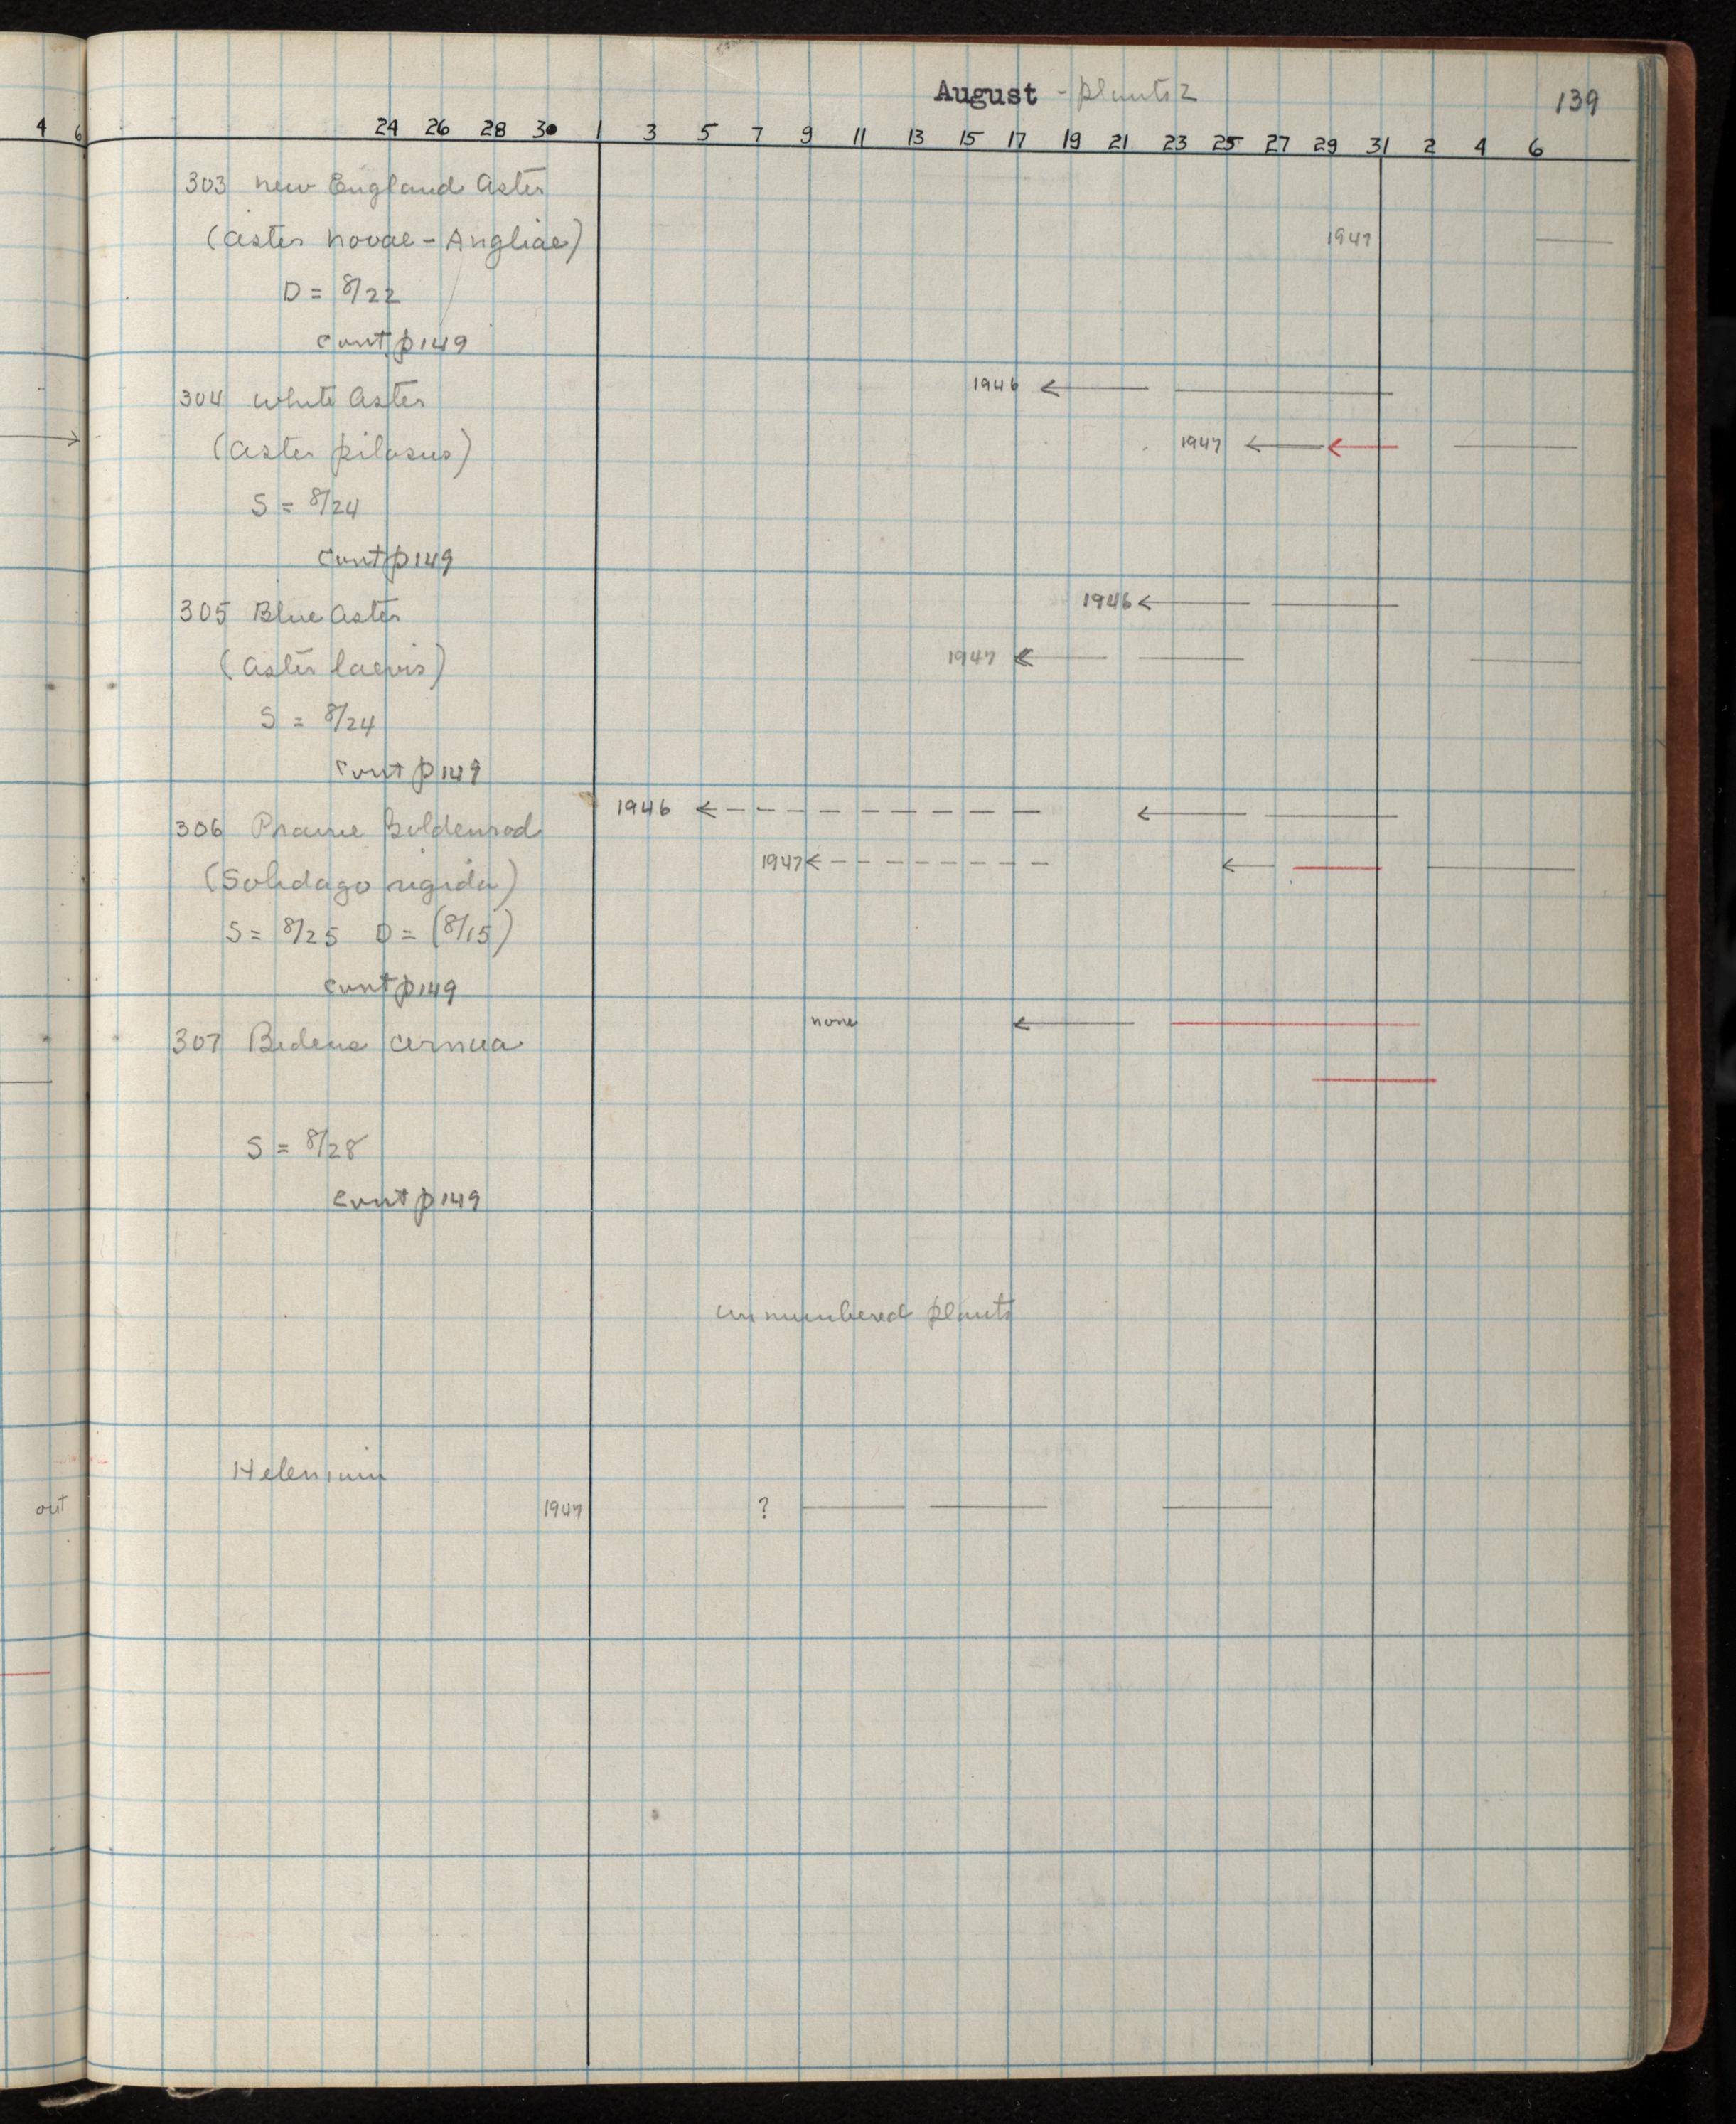 August - plants 2
139
4 6
24 26 28 30 1 3 5 7 9 11 13 15 17 19 21 23 25 27 29 31 2 4 6
303 New England Aster
(Aster novae-Angliae) 1947
D = 8/22
cont p 149
1946
304 White Aster
(Aster pilosus) 1947
S = 8/24
cont p 149
305 Blue Aster 1946
(Aster laevis) 1947
S = 8/24
cont p 149
1946
306 Prairie Goldenrod
1947
(Solidago rigida)
S = 8/25 D = (8/15)
cont p 149
none
307 Bidens cernua
S = 8/28
cont p 149
unnumbered plants
Helenium
out
1947 ?